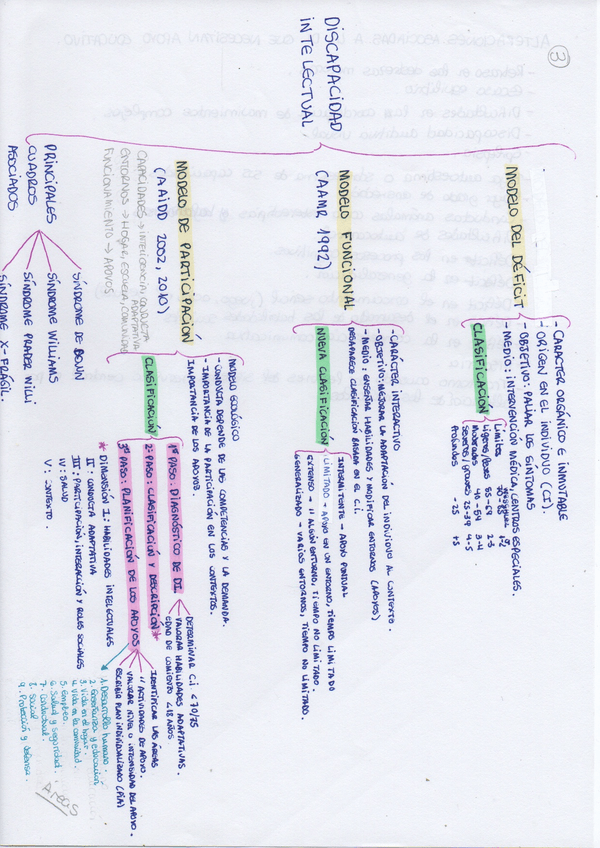 3
DISCAPACIDAD
INTELECTUAL
MODELO DEL DÉFICIT
- CARÁCTER ORGÁNICO E INMUTABLE
- ORIGEN EN EL INDIVIDUO (CI).
- OBJETIVO: PALIAR LOS SÍNTOMAS
- MEDIO: INTERVENCIÓN MÉDICA, CENTROS ESPECIALES.
CLASIFICACIÓN
Límites
Ligeros/leves 55-69
Moderados 40-54 3-4
Severos/graves 25-39 4-5
Profundos -25
MODELO FUNCIONAL
(AAMR 1992)
- CARÁCTER INTERACTIVO
- OBJETIVO: MEJORAR LA ADAPTACIÓN DEL INDIVIDUO AL CONTEXTO.
- MEDIO: ENSEÑAR HABILIDADES Y MODIFICAR ENTORNOS (APOYOS)
DESAPARECE CLASIFICACIÓN BASADA EN EL C.I.
NUEVA CLASIFICACIÓN
INTERMITENTE → APOYO PUNTUAL
LIMITADO → APOYO EN UN ENTORNO, TIEMPO LIMITADO
EXTENSO → " ALGÚN ENTORNO, TIEMPO NO LIMITADO.
GENERALIZADO → VARIOS ENTORNOS, TIEMPO NO LIMITADO.
MODELO DE PARTICIPACIÓN
(AAIDD 2002, 2010)
CAPACIDADES → INTELIGENCIA, CONDUCTA
ADAPTATIVA
ENTORNOS → HOGAR, ESCUELA, COMUNIDAD
FUNCIONAMIENTO → APOYOS
MODELO ECOLÓGICO
- CONDUCTA DEPENDE DE LAS COMPETENCIAS Y LA DEMANDA.
- IMPORTANCIA DE LA PARTICIPACIÓN EN LOS CONTEXTOS.
IMPORTANCIA DE LOS APOYOS.
CLASIFICACIÓN
1º PASO: DIAGNÓSTICO DE DI
DETERMINAR C.I. <70/75
VALORAR HABILIDADES ADAPTATIVAS.
EDAD DE COMIENTO <18 AÑOS
2º PASO: CLASIFICACIÓN Y DESCRIPCIÓN*
3º PASO: PLANIFICACIÓN DE LOS APOYOS
IDENTIFICAR LAS ÁREAS
" ACTIVIDADES DE APOYO.
VALORAR NIVEL O INTENSIDAD DEL APOYO.
ESCRIBIR PLAN INDIVIDUALIZADO (PIA)
* DIMENSIÓN I: HABILIDADES INTELECTUALES
II: CONDUCTA ADAPTATIVA
III: PARTICIPACIÓN, INTERACCIÓN Y ROLES SOCIALES
IV: SALUD
V: CONTEXTO.
1. Desarrollo humano.
2. Enseñanza y educación
3. Vida en el hogar.
4. Vida en la comunidad.
5. Empleo.
6. Salud y seguridad.
7. Conductual.
8. Social
9. Protección y defensa.
PRINCIPALES
CUADROS
ASOCIADOS
SÍNDROME DE DOWN
SÍNDROME WILLIAMS
SÍNDROME PRADER WILLI
SÍNDROME X-FRÁGIL.